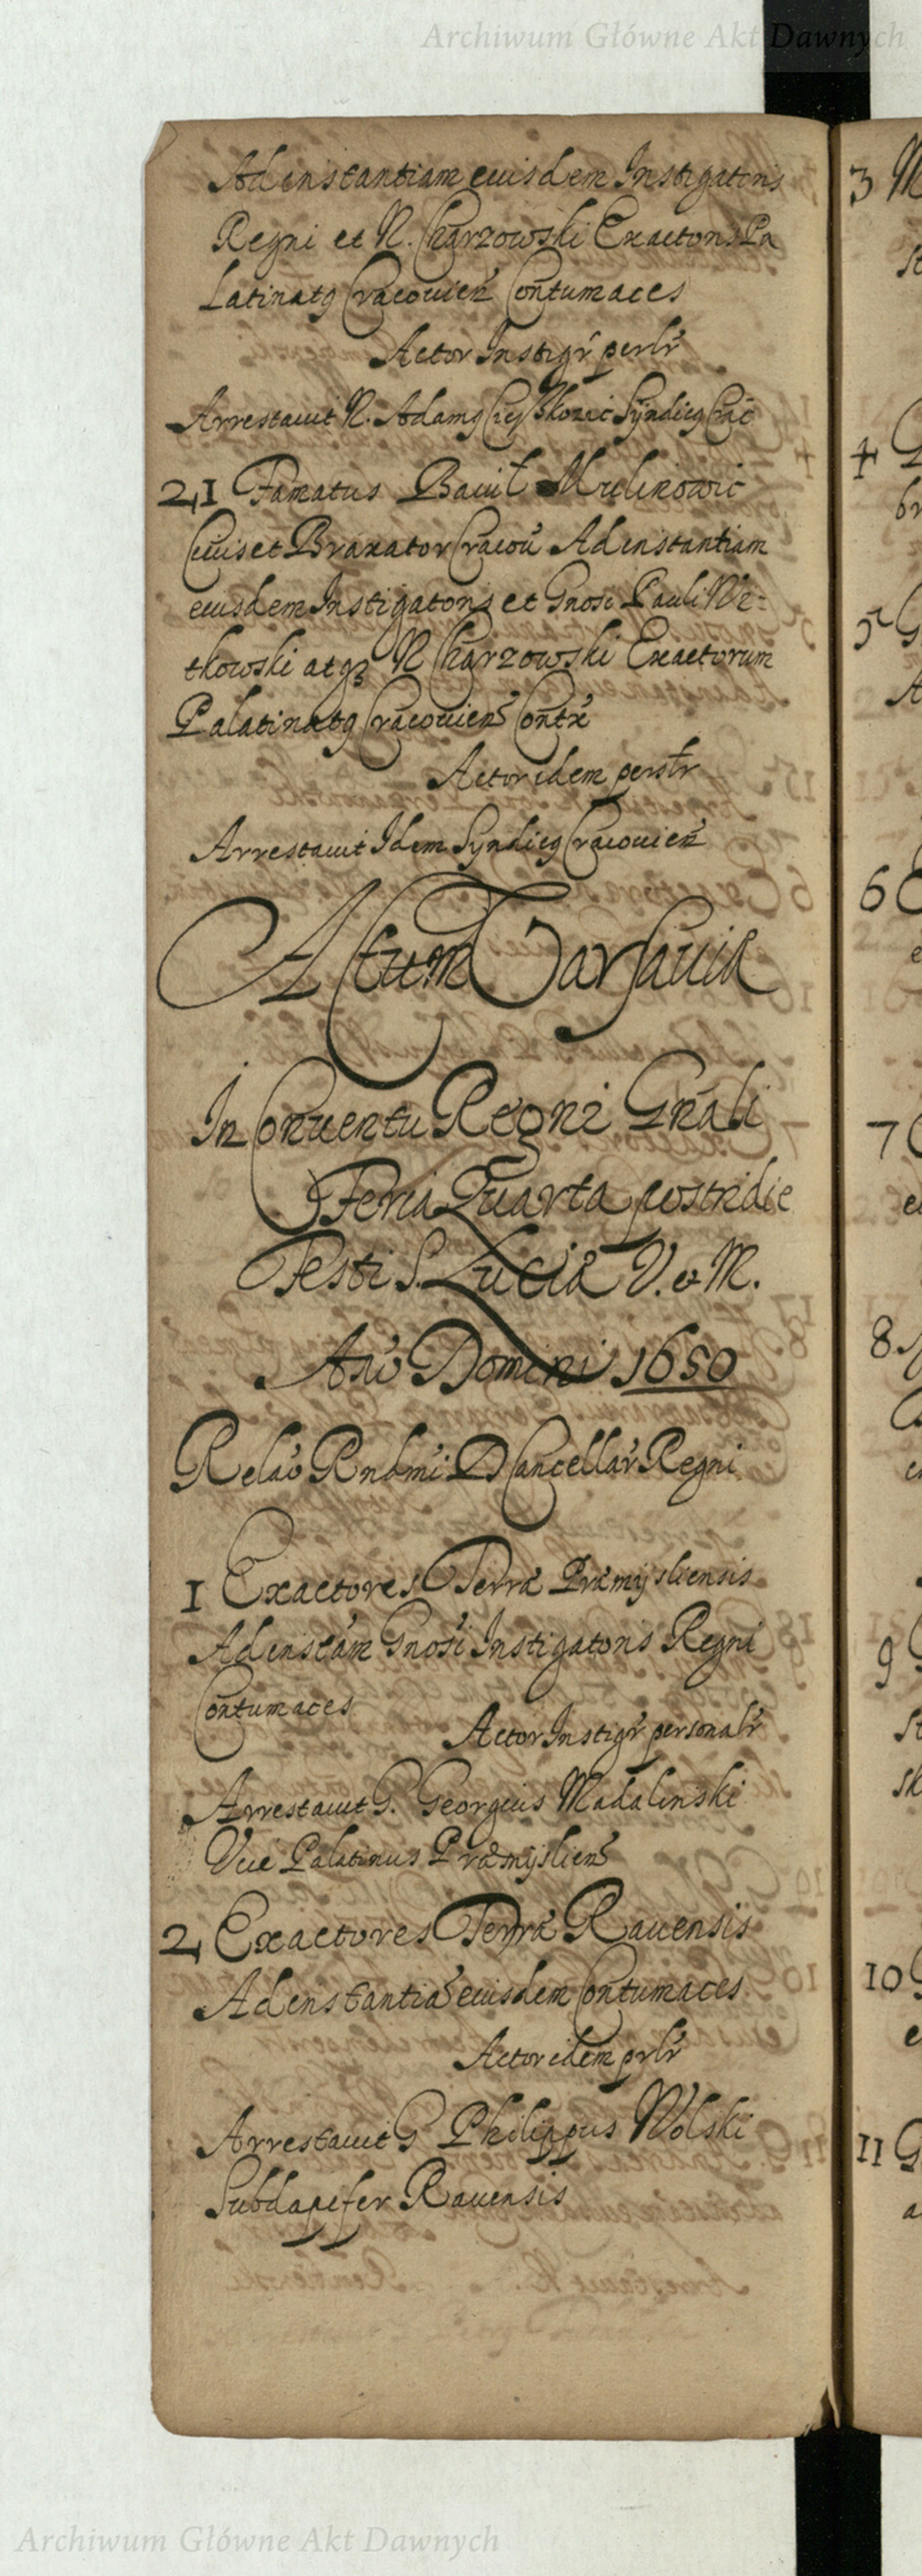 Archiwum Główne Akt Dawnych
Ad instantiam eiusdem Instigatoris
Regni et N. Charzowski Exactoris Pa
latinatq Cracouien Contumaces
Actor Instigr perlr
Arrestauit N. Adamq Syndicq Crac
21 Famatus Bauil
Ciuis et Braxator Cracou Ad instantiam
eiusdem Instigatoris et Gnosi Pauli We=
tkowski atqz N Charzowski Exactorum
Palatinatq Cracouien Contx
Actor idem perslr
Arrestauit Idem Syndicq Cracouien
Actum Varsauiæ
In Conuentu Regni Gnali
Feria Quarta postridie
Festi S. Luciæ V. et M.
Ano Domini 1650
Relao Rndmi D Cancellar Regni
1 Exactores Terræ Præmysliensis
Ad instam Gnosi Instigatoris Regni
Contumaces
Actor Instigr personalr
Arrestauit G. Georgius Madalinski
Vice Palatinus Præmyslien
2 Exactores Terræ Rauensis
Ad instantia eiusdem Contumaces
Actor idem prlr
Arrestauit G Philippus Wolski
Subdapifer Rauensis
3
4
5
6
7
8
9
10
11
Archiwum Główne Akt Dawnych